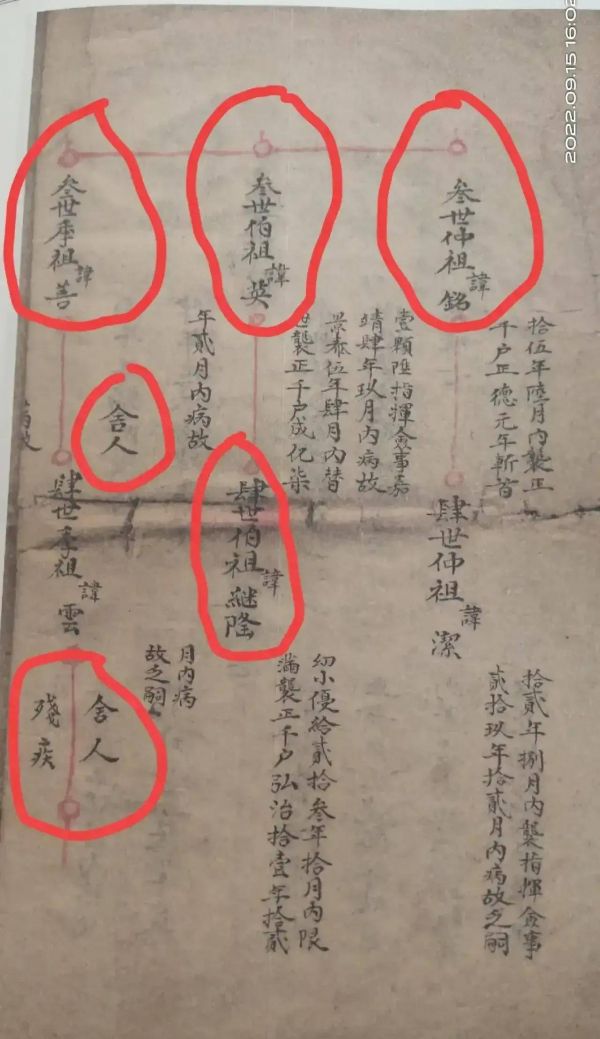 2022.09.15 16:02
叁世仲祖諱銘
拾伍年陸月內襲正
千户正德元年斬首
壹顆陞指揮僉事嘉
靖肆年玖月內病故
叁世伯祖諱英
景泰伍年肆月內替
世襲正千户成化柒
年貳月內病故
叁世季祖諱善
舍人
病故
肆世仲祖諱潔
拾貳年捌月內襲指揮僉事
貳拾玖年拾貳月內病故乏嗣
肆世伯祖諱継隆
幼小優給貳拾叁年拾月內限
滿襲正千户弘治拾壹年拾貳
月內病
故乏嗣
肆世季祖諱雲
舍人
殘疾